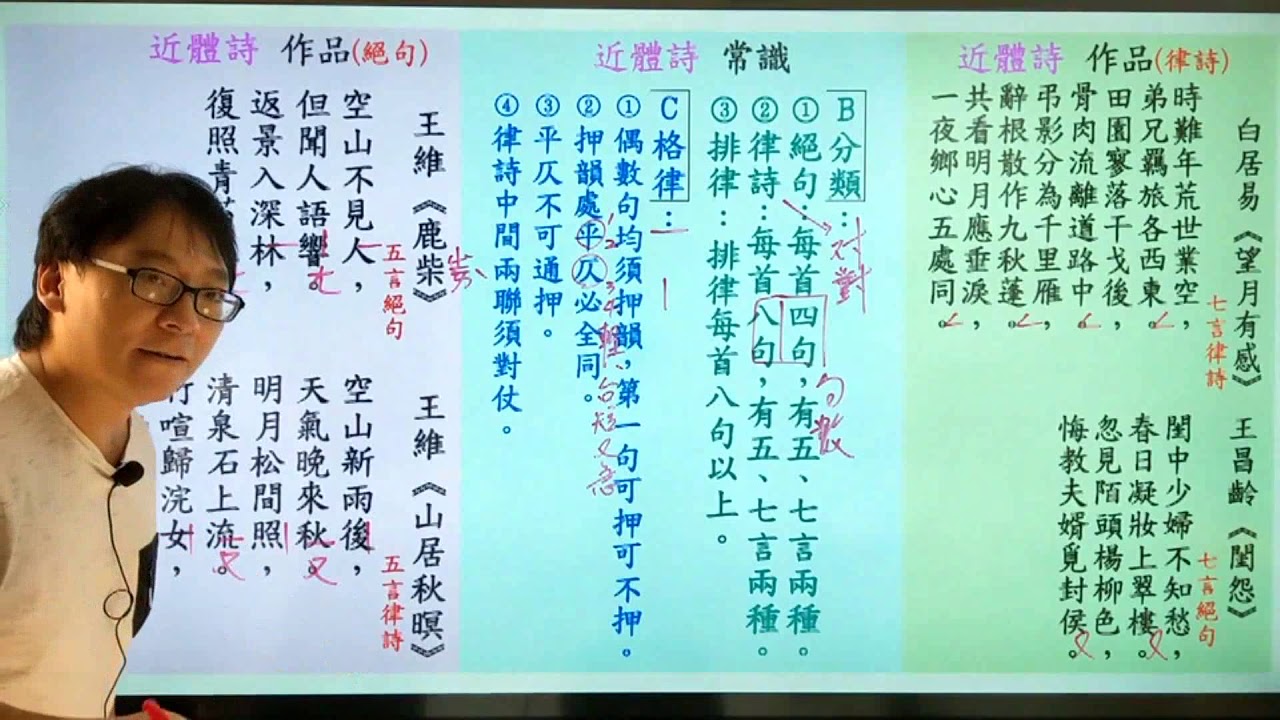 近體詩 作品(律詩)
白居易《望月有感》
七言律詩
時難年荒世業空，
弟兄羈旅各西東。
田園寥落干戈後，
骨肉流離道路中。
弔影分為千里雁，
辭根散作九秋蓬。
共看明月應垂淚，
一夜鄉心五處同。
王昌齡《閨怨》
七言絕句
閨中少婦不知愁，
春日凝妝上翠樓。
忽見陌頭楊柳色，
悔教夫婿覓封侯。
近體詩 常識
B分類：
①絕句：每首四句，有五、七言兩種。
②律詩：每首八句，有五、七言兩種。
③排律：排律每首八句以上。
對
句數
C格律：
①偶數句均須押韻，第一句可押可不押。
②押韻處平仄必全同。
③平仄不可通押。
④律詩中間兩聯須對仗。
短又急
近體詩 作品(絕句)
王維《鹿柴》
五言絕句
空山不見人，
但聞人語響。
返景入深林，
復照青
王維《山居秋暝》
五言律詩
空山新雨後，
天氣晚來秋。
明月松間照，
清泉石上流。
竹喧歸浣女，